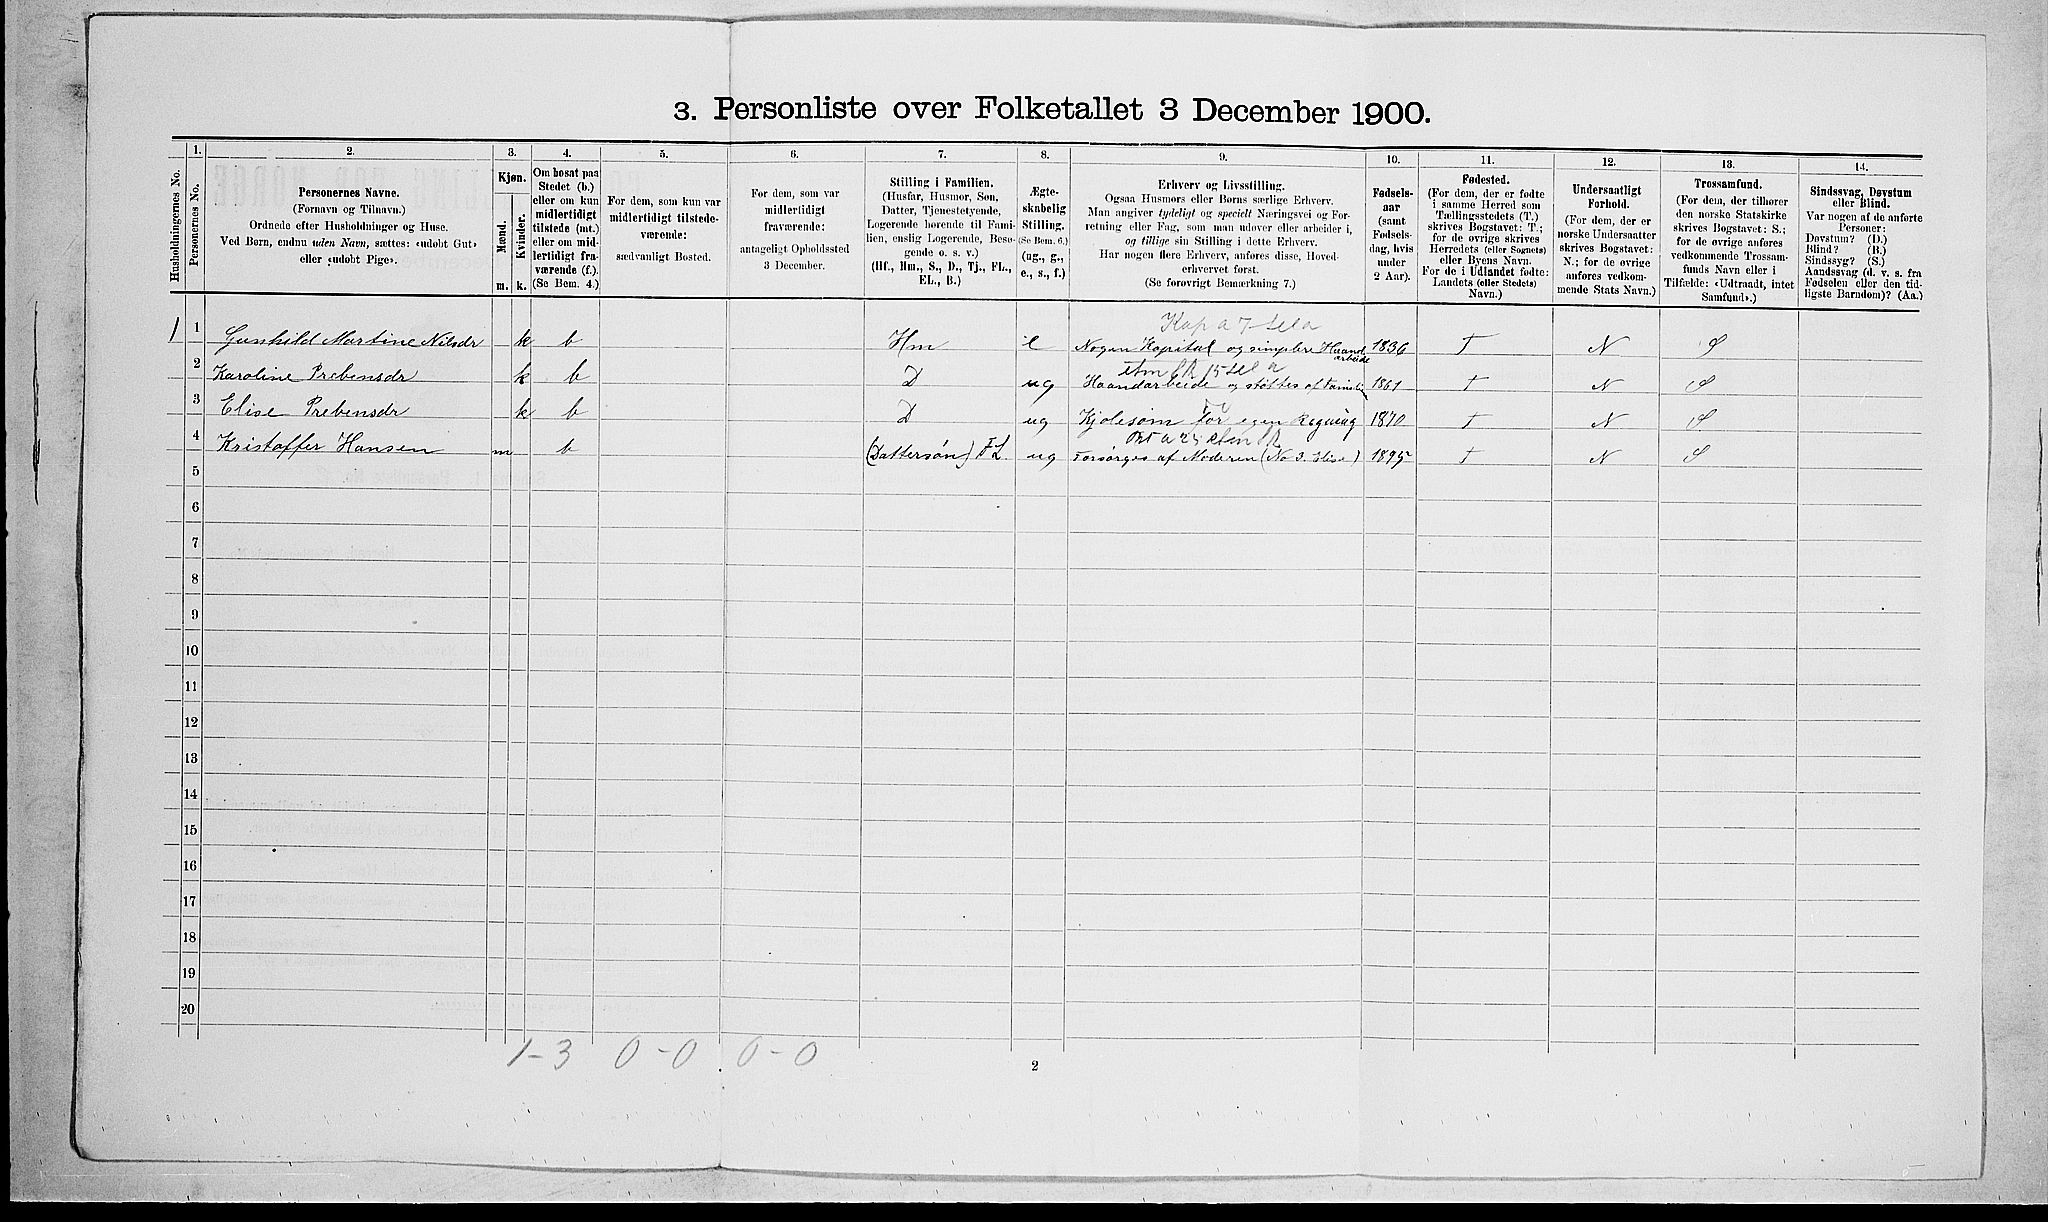 3. Personliste over Folketallet 3 December 1900.
Husholdningernes No.
1.
Personernes No.
2.
Personernes Navne.
(Fornavn og Tilnavn.)
Ordnede efter Husholdninger og Huse.
Ved Børn, endnu uden Navn, sættes: «udøbt Gut»
eller «udøbt Pige».
3.
Kjøn.
Mænd.
Kvinder.
m. k.
4.
Om bosat paa
Stedet (b.)
eller om kun
midlertidigt
tilstede (mt.)
eller om mid-
lertidigt fra-
værende (f.).
(Se Bem. 4.)
5.
For dem, som kun var
midlertidigt tilstede-
værende:
sædvanligt Bosted.
6.
For dem, som var
midlertidigt
fraværende:
antageligt Opholdssted
3 December.
7.
Stilling i Familien.
(Husfar, Husmor, Søn,
Datter, Tjenestetyende,
Logerende hørende til Fami-
lien, enslig Logerende, Besø-
gende o. s. v.)
(Hf., Hm., S., D., Tj., FL.,
EL., B.)
8.
Ægte-
skabelig
Stilling.
(Se Bem. 6.)
(ug., g.,
e., s., f.)
9.
Erhverv og Livsstilling.
Ogsaa Husmors eller Børns særlige Erhverv.
Man angiver tydeligt og specielt Næringsvei og For-
retning eller Fag, som man udøver eller arbeider i,
og tillige sin Stilling i dette Erhverv.
Har nogen flere Erhverv, anføres disse, Hoved-
erhvervet først.
(Se forøvrigt Bemærkning 7.)
10.
Fødsels-
aar
(samt
Fødsels-
dag, hvis
under
2 Aar).
11.
Fødested.
(For dem, der er fødte
i samme Herred som
Tællingsstedets (T.)
skrives Bogstavet: T.;
for de øvrige skrives
Herredets (eller Sognets)
eller Byens Navn.
For de i Udlandet fødte:
Landets (eller Stedets)
Navn.)
12.
Undersaatligt
Forhold.
(For dem, der er
norske Undersaatter
skrives Bogstavet:
N.; for de øvrige
anføres vedkom-
mende Stats Navn.)
13.
Trossamfund.
(For dem, der tilhører
den norske Statskirke
skrives Bogstavet: S.;
for de øvrige anføres
vedkommende Trossam-
funds Navn eller i
Tilfælde: «Udtraadt, intet
Samfund».)
14.
Sindssvag, Døvstum
eller Blind.
Var nogen af de anførte
Personer:
Døvstum? (D.)
Blind? (B.)
Sindssyg? (S.)
Aandssvag (d. v. s. fra
Fødselen eller den tid-
ligste Barndom)? (Aa.)
Kap a 7
1 1 Gunhild Martine Nilsdr k b Hm e Nogen Kapital og simplere Haand arbeide 1836 T N S
2 Karoline Prebensdr k b D ug Haandarbeide og støttes af Familie 1861 T N S
3 Elise Prebensdr k b D ug Kjolesøm for egen Regning 1870 T N S
4 Kristoffer Hansen m b (Dattersøn) FL ug Forsørges af Moderen (No 3. Elise) 1895 T N S
5
6
7
8
9
10
11
12
13
14
15
16
17
18
19
20
1-3 0-0 0-0
2